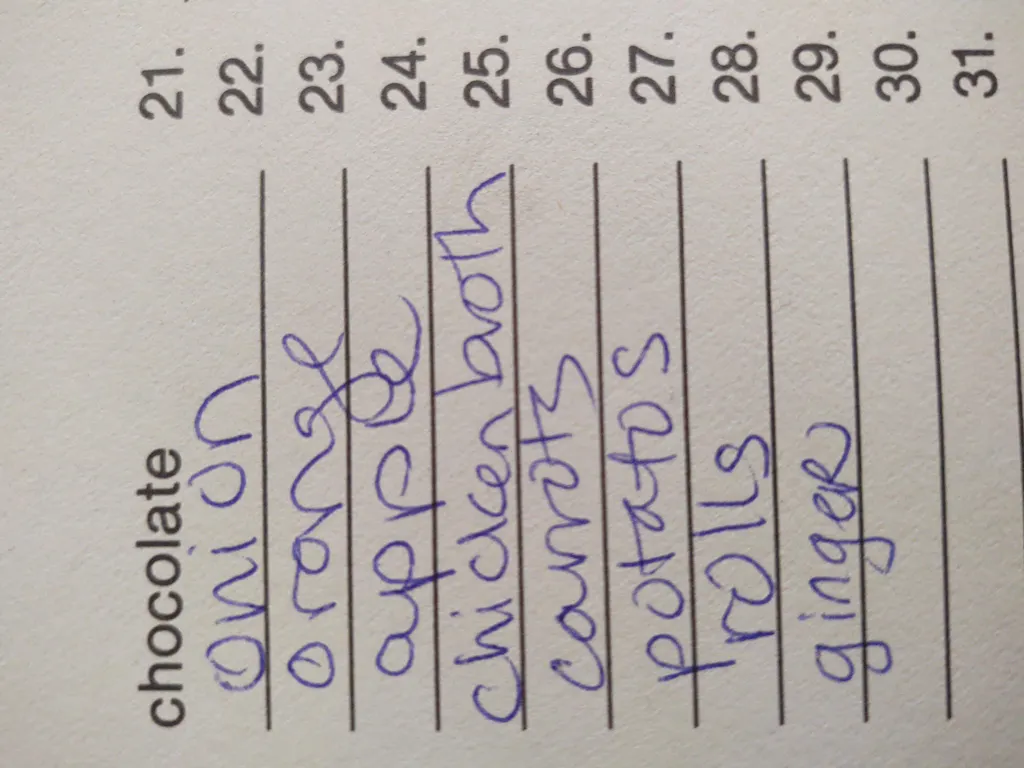 chocolate 21.
onion 22.
orange 23.
apple 24.
chicken broth 25.
carrots 26.
potatos 27.
rolls 28.
ginger 29.
30.
31.